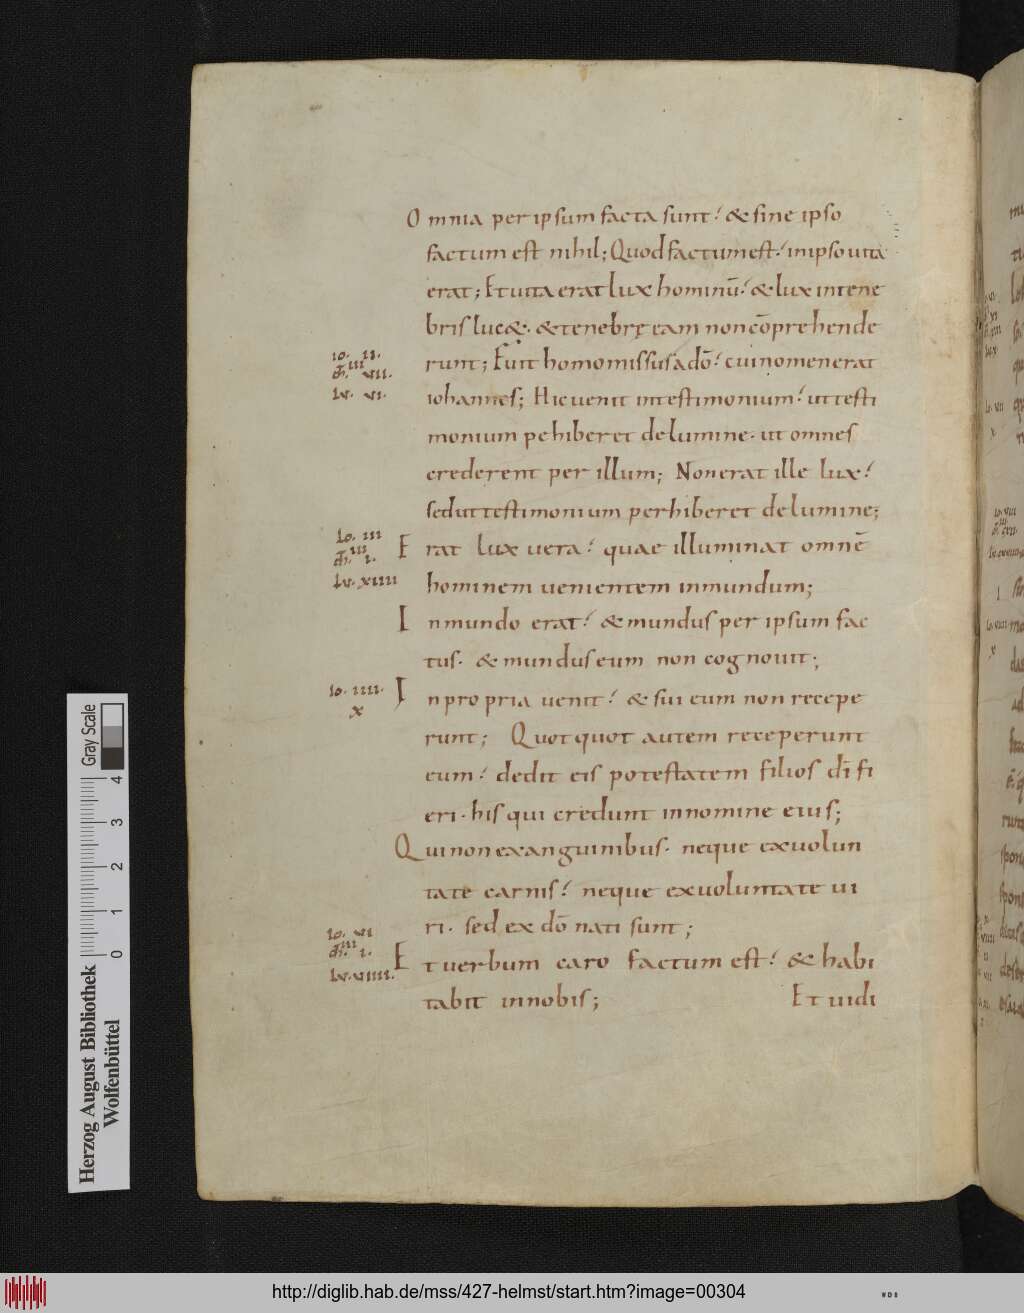 Omnia per ipsum facta sunt; & sine ipso
factum est nihil; Quod factum est; in ipso uita
erat; Et uita erat lux hominū; & lux in tene
bris luc&. & tenebrę eam non cōprehende
runt; Fuit homo missus a dō; cui nomen erat
iohannes; Hic uenit in testimonium; ut testi
monium pehiberet de lumine. ut omnes
crederent per illum; Non erat ille lux;
sed ut testimonium perhiberet de lumine;
Erat lux uera; quae illuminat omnē
hominem uenientem in mundum;
In mundo erat; & mundus per ipsum fac
tus. & mundus eum non cognouit;
In propria uenit; & sui eum non recepe
runt; Quotquot autem receperunt
eum; dedit eis potestatem filios dī fi
eri. his qui credunt in nomine eius;
Qui non ex anguinibus. neque ex uolun
tate carnis; neque ex uoluntate ui
ri. sed ex dō nati sunt;
Et uerbum caro factum est; & habi
tabit in nobis; Et uidi
Io. II.
m̄. III VII.
Lv. VI.
Io. III
m̄. III I.
Lv. XIIII
Io. IIII.
X
Io. VI
m̄. III I.
Lv. VIIII.
Gray Scale
0 1 2 3 4
Herzog August Bibliothek
Wolfenbüttel
http://diglib.hab.de/mss/427-helmst/start.htm?image=00304